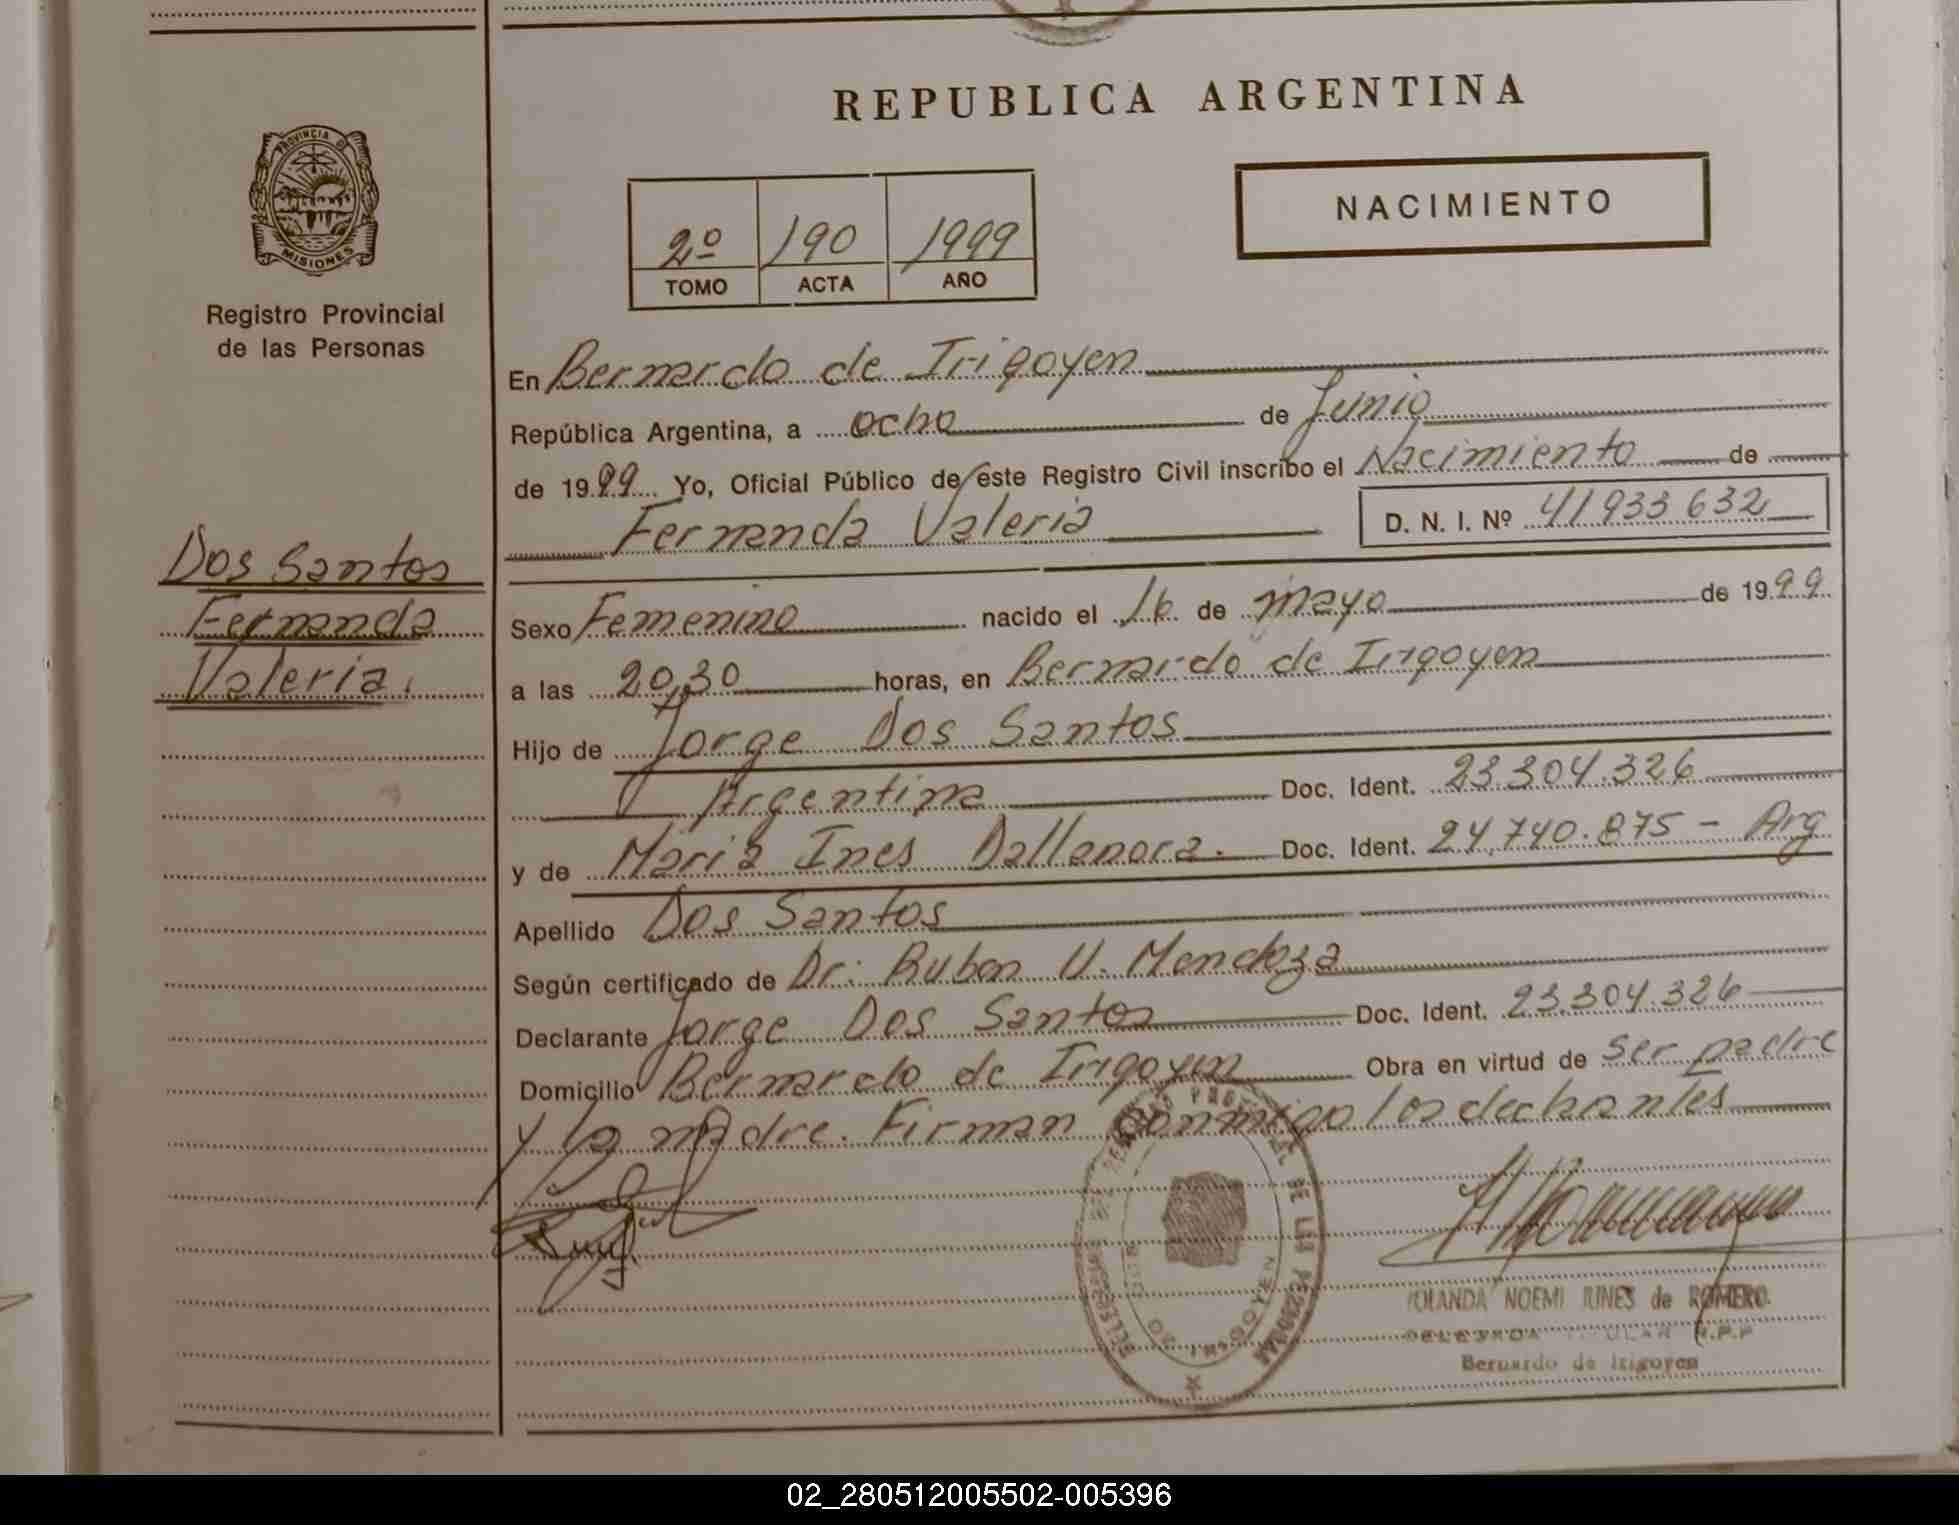 REPUBLICA ARGENTINA
PROVINCIA DE
MISIONES
Registro Provincial
de las Personas
2º 190 1999
TOMO ACTA AÑO
NACIMIENTO
En Bernardo de Irigoyen
República Argentina, a ocho de Junio
de 1999 Yo, Oficial Público de este Registro Civil inscribo el Nacimiento de
Fernanda Valeria D. N. I. Nº 41933632
Dos Santos
Fernanda
Valeria.
Sexo Femenino nacido el 16 de mayo de 1999
a las 20,30 horas, en Bernardo de Irigoyen
Hijo de Jorge Dos Santos
Argentina Doc. Ident. 23.304.326
y de Maria Ines Dallanora. Doc. Ident. 24.740.875 - Arg
Apellido Dos Santos
Según certificado de Dr: Ruben V. Mendoza
Declarante Jorge Dos Santos Doc. Ident. 23.304.326
Domicilio Bernardo de Irigoyen Obra en virtud de ser padre
y la madre. Firman conmigo los declarantes
DE LAS PERSONAS
IRIGOYEN
YOLANDA NOEMI IUNES de ROMERO
R.P.P
Bernardo de Irigoyen
02_280512005502-005396